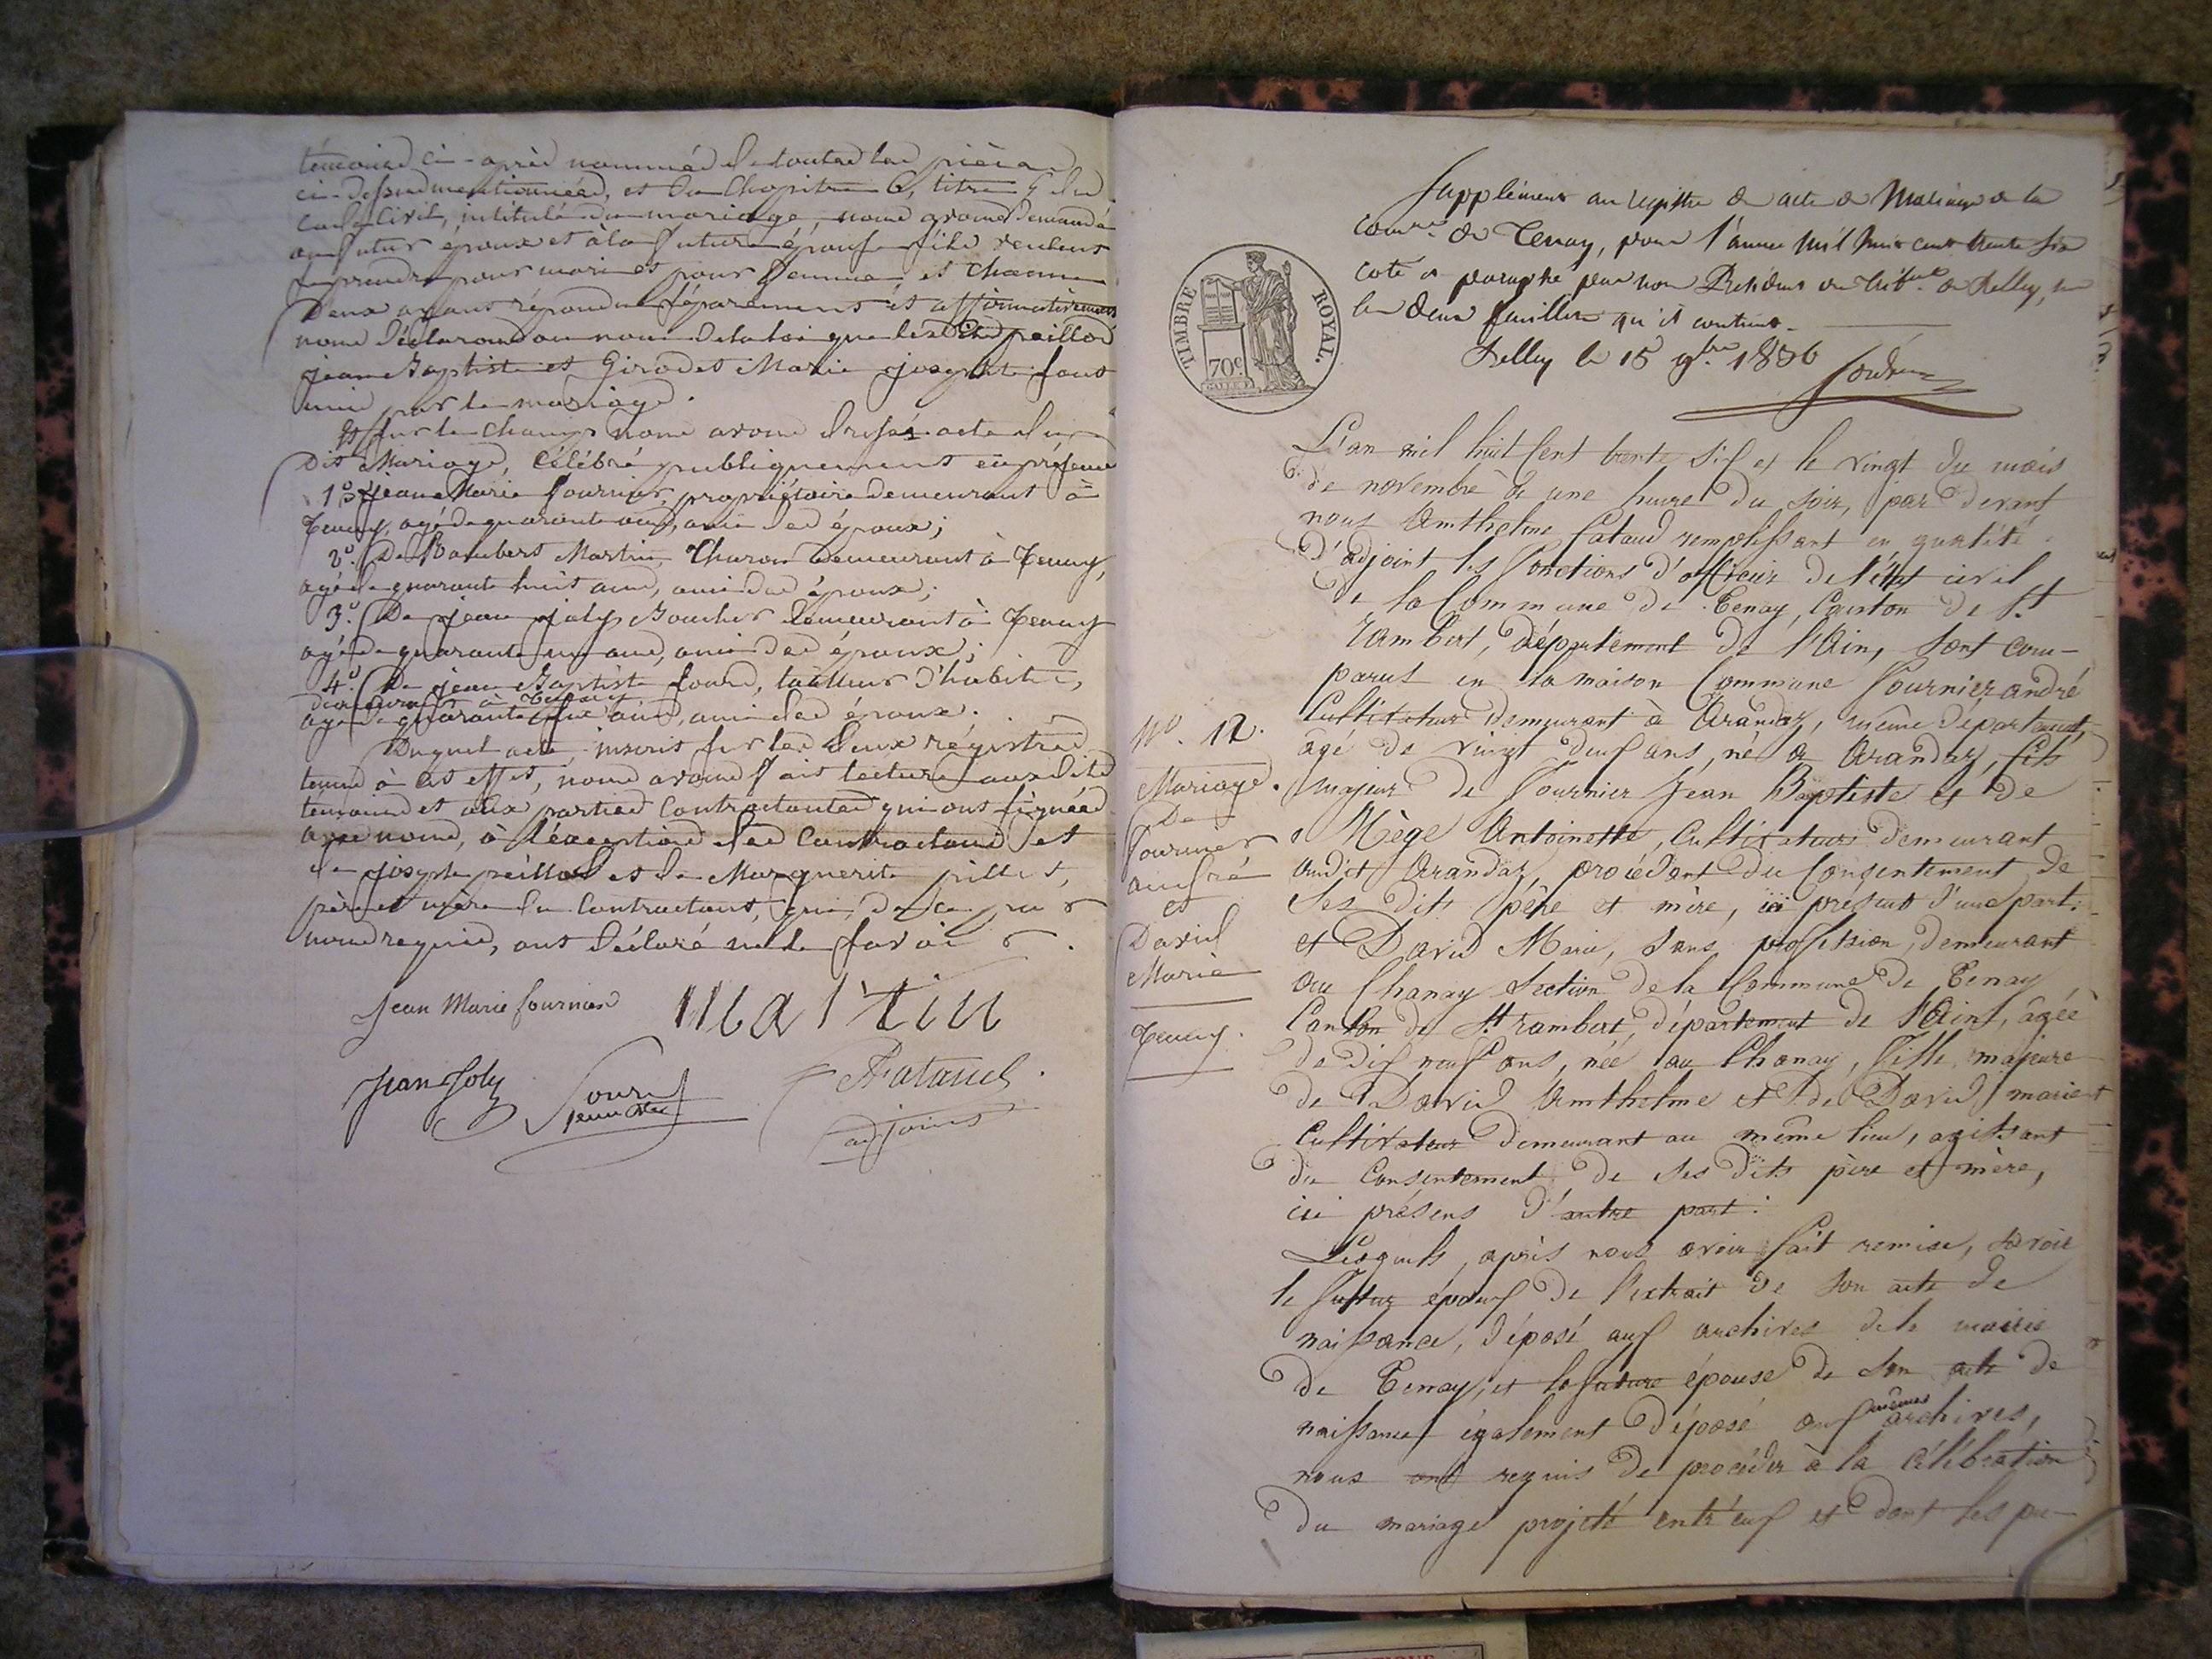 témoins ci-après nommés de toutes les pièces
ci-dessus mentionnées, et du Chapitre 6, titre 5 du
Code Civil, intitulé du mariage, nous avons demandé
au futur époux et à la future épouse s'ils veulent
se prendre pour mari et pour femme, et chacun
d'eux ayant répondu séparément et affirmativement
nous déclarons au nom de la loi que les dits peillod
jean Baptiste et Girodet Marie josephte sont
unis par le mariage.
Et sur le champ nous avons dressé acte du
dit Mariage, Célébré publiquement en présence
1° jean Marie fournier, propriétaire demeurant à
Tenay, agé de quarante ans, ami des époux;
2° De Martin Charon demeurant à Tenay,
agé de quarante huit ans, ami des époux;
3° De jean joly Boucher demeurant à Tenay
agé de quarante un ans, ami des époux;
4° De jean Baptiste tailleur d'habits,
demeurant à Tenay
agé de quarante ans, ami des époux.
Duquel acte, inscrit sur les deux régistres
tenus à cet effet, nous avons fait lecture aux dits
témoins et aux parties Contractantes qui ont signées
avec nous, à l'éxception des Contractans et
de joseph peillod et de Marguerite pillet,
père et mère du Contractant, qui, de ce par
nous requis, ont déclaré ne le savoir.
Jean Marie fournier Martin
Jean Joly AFataud
adjoint
Supplément au registre des actes de Mariage de la
comne de Tenay, pour l'année mil huit cent trente six
coté et paraphé par nous Président du tribal de Belley, sur
les deux feuillets qu'il contient.
Belley le 15 9bre 1836
TIMBRE ROYAL.
70c
L'an mil huit cent trente six et le vingt du mois
de novembre à une heure du soir, par devant
nous Amthelme Fataud remplissant en qualité
d'adjoint les fonctions d'officier de l'état civil
de la Commune de Tenay, Canton de St
Rambert, département de l'Ain, sont com-
parus en la maison Commune Fournier andré
Cultivateur demeurant à Arandaz, même département,
âgé de vingt deux ans, né à Arandaz, fils
majeur de Fournier Jean Baptiste et de
Mège Antoinette, Cultivateurs demeurant
audit Arandaz, procédant du Consentement de
ses dits père et mère, ici présents d'une part:
et David Marie, sans profession, demeurant
au Chanay section de la Commune de Tenay,
Canton de St rambert, département de l'Ain, âgée
de dix neuf ans, née au Chanay, fille majeure
de David Amthelme et de David marie
Cultivateurs demeurant au même lieu, agissant
du Consentement de ses dits père et mère,
ici présens d'autre part:
Lesquels, après nous avoir fait remise, savoir
le futur époux de l'extrait de son acte de
naissance, déposé aux archives de la mairie
de Tenay, et la future épouse de son acte de
naissance également déposé aux mêmes archives,
nous ont requis de procéder à la célébration
du mariage projeté entr'eux et dont les pu-
No. 12.
Mariage
De
Fournier
andré
et
David
Marie
Tenay.